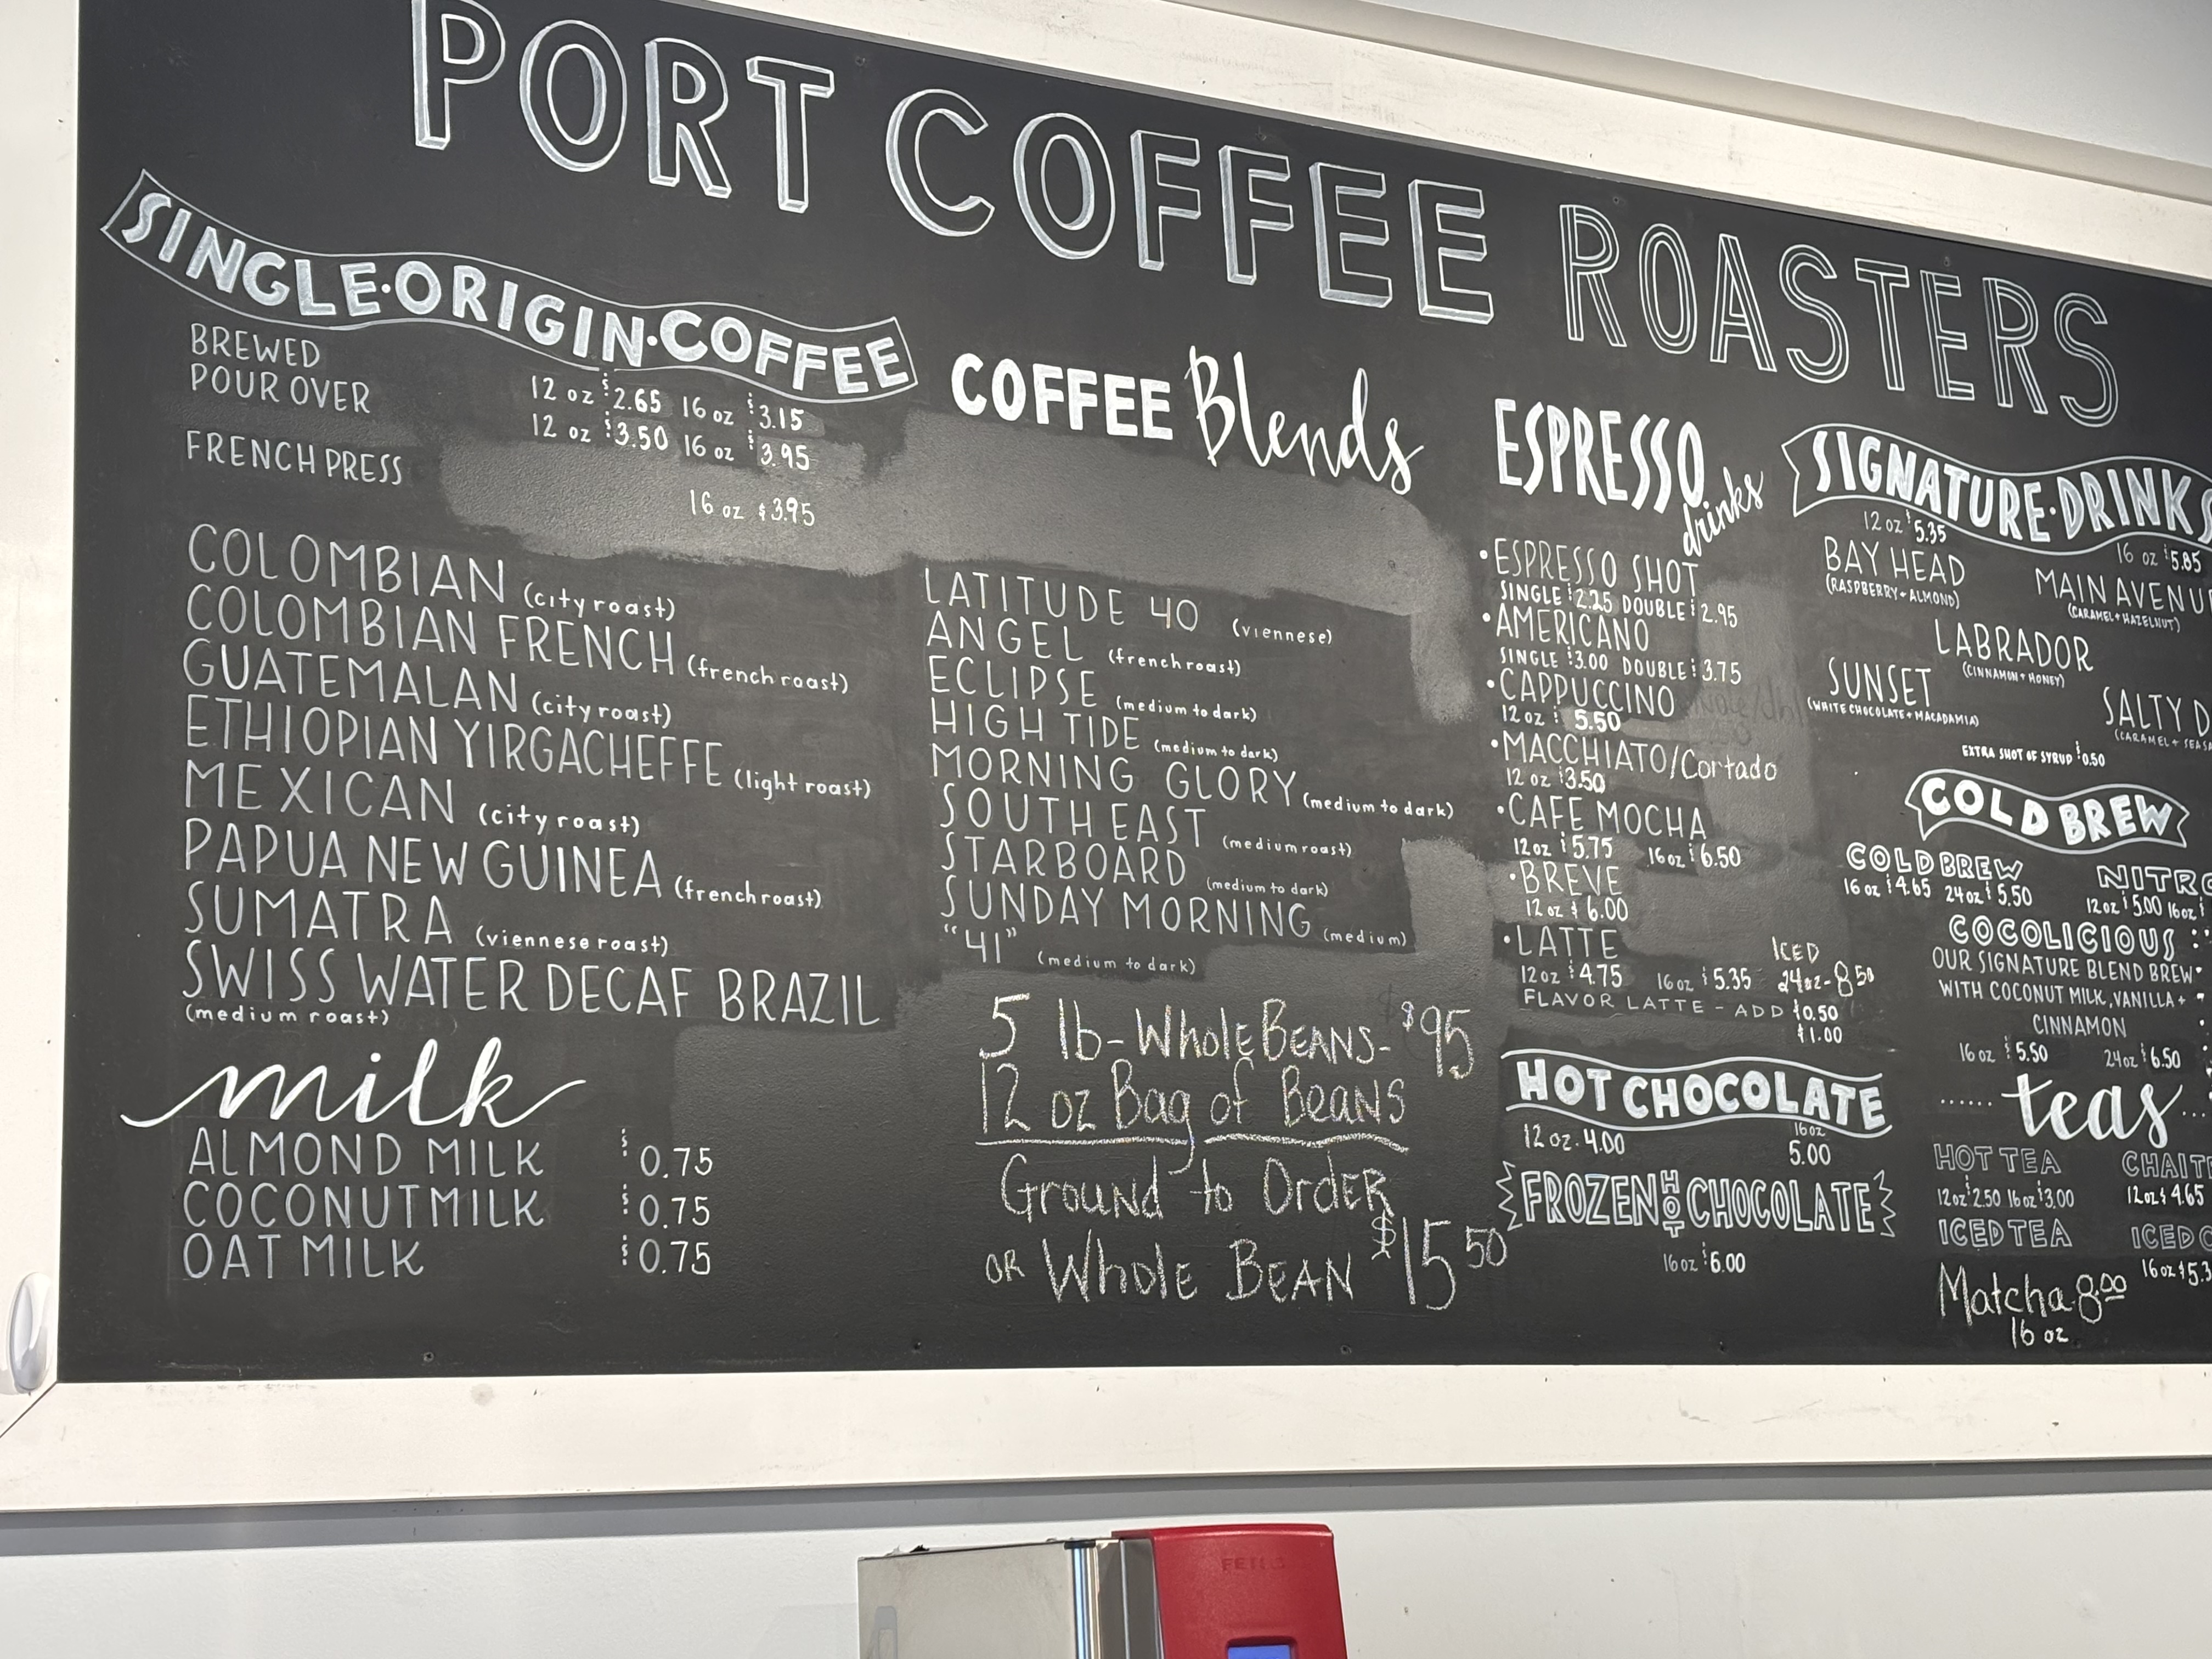 PORT COFFEE ROASTERS
SINGLE·ORIGIN·COFFEE
BREWED 12 oz $2.65 16 oz $3.15
POUR OVER 12 oz $3.50 16 oz $3.95
FRENCH PRESS 16 oz $3.95
COLOMBIAN (city roast)
COLOMBIAN FRENCH (french roast)
GUATEMALAN (city roast)
ETHIOPIAN YIRGACHEFFE (light roast)
MEXICAN (city roast)
PAPUA NEW GUINEA (french roast)
SUMATRA (viennese roast)
SWISS WATER DECAF BRAZIL
(medium roast)
milk
ALMOND MILK $0.75
COCONUT MILK $0.75
OAT MILK $0.75
COFFEE Blends
LATITUDE 40 (viennese)
ANGEL (french roast)
ECLIPSE (medium to dark)
HIGH TIDE (medium to dark)
MORNING GLORY (medium to dark)
SOUTH EAST (medium roast)
STARBOARD (medium to dark)
SUNDAY MORNING (medium)
"41" (medium to dark)
5 lb - Whole BEANS - $95
12 oz Bag of Beans
Ground to Order
OR Whole BEAN $15 50
ESPRESSO
drinks
·ESPRESSO SHOT
SINGLE $2.25 DOUBLE $2.95
·AMERICANO
SINGLE $3.00 DOUBLE $3.75
·CAPPUCCINO
12 oz $5.50
·MACCHIATO/Cortado
12 oz $3.50
·CAFE MOCHA
12 oz $5.75 16 oz $6.50
·BREVE
12 oz $6.00
·LATTE ICED
12 oz $4.75 16 oz $5.35 24oz - 8 50
FLAVOR LATTE - ADD $0.50
$1.00
HOT CHOCOLATE
12 oz. 4.00 16oz 5.00
FROZEN HOT CHOCOLATE
16 oz $6.00
SIGNATURE·DRINKS
12 oz $5.35 16 oz $5.85
BAY HEAD
(RASPBERRY + ALMOND)
MAIN AVENU
(CARAMEL + HAZELNUT)
LABRADOR
(CINNAMON + HONEY)
SUNSET
(WHITE CHOCOLATE + MACADAMIA)
SALTY D
(CARAMEL + SEASA
EXTRA SHOT OF SYRUP $0.50
COLD BREW
COLD BREW NITRO
16 oz $4.65 24oz $5.50 12oz $5.00 16oz $
COCOLICIOUS
OUR SIGNATURE BLEND BREW
WITH COCONUT MILK, VANILLA +
CINNAMON
16 oz $5.50 24oz $6.50
teas
HOT TEA CHAI T
12oz $2.50 16oz $3.00 12oz $4.65
ICED TEA ICED C
16oz $5.3
Matcha 8.00
16 oz